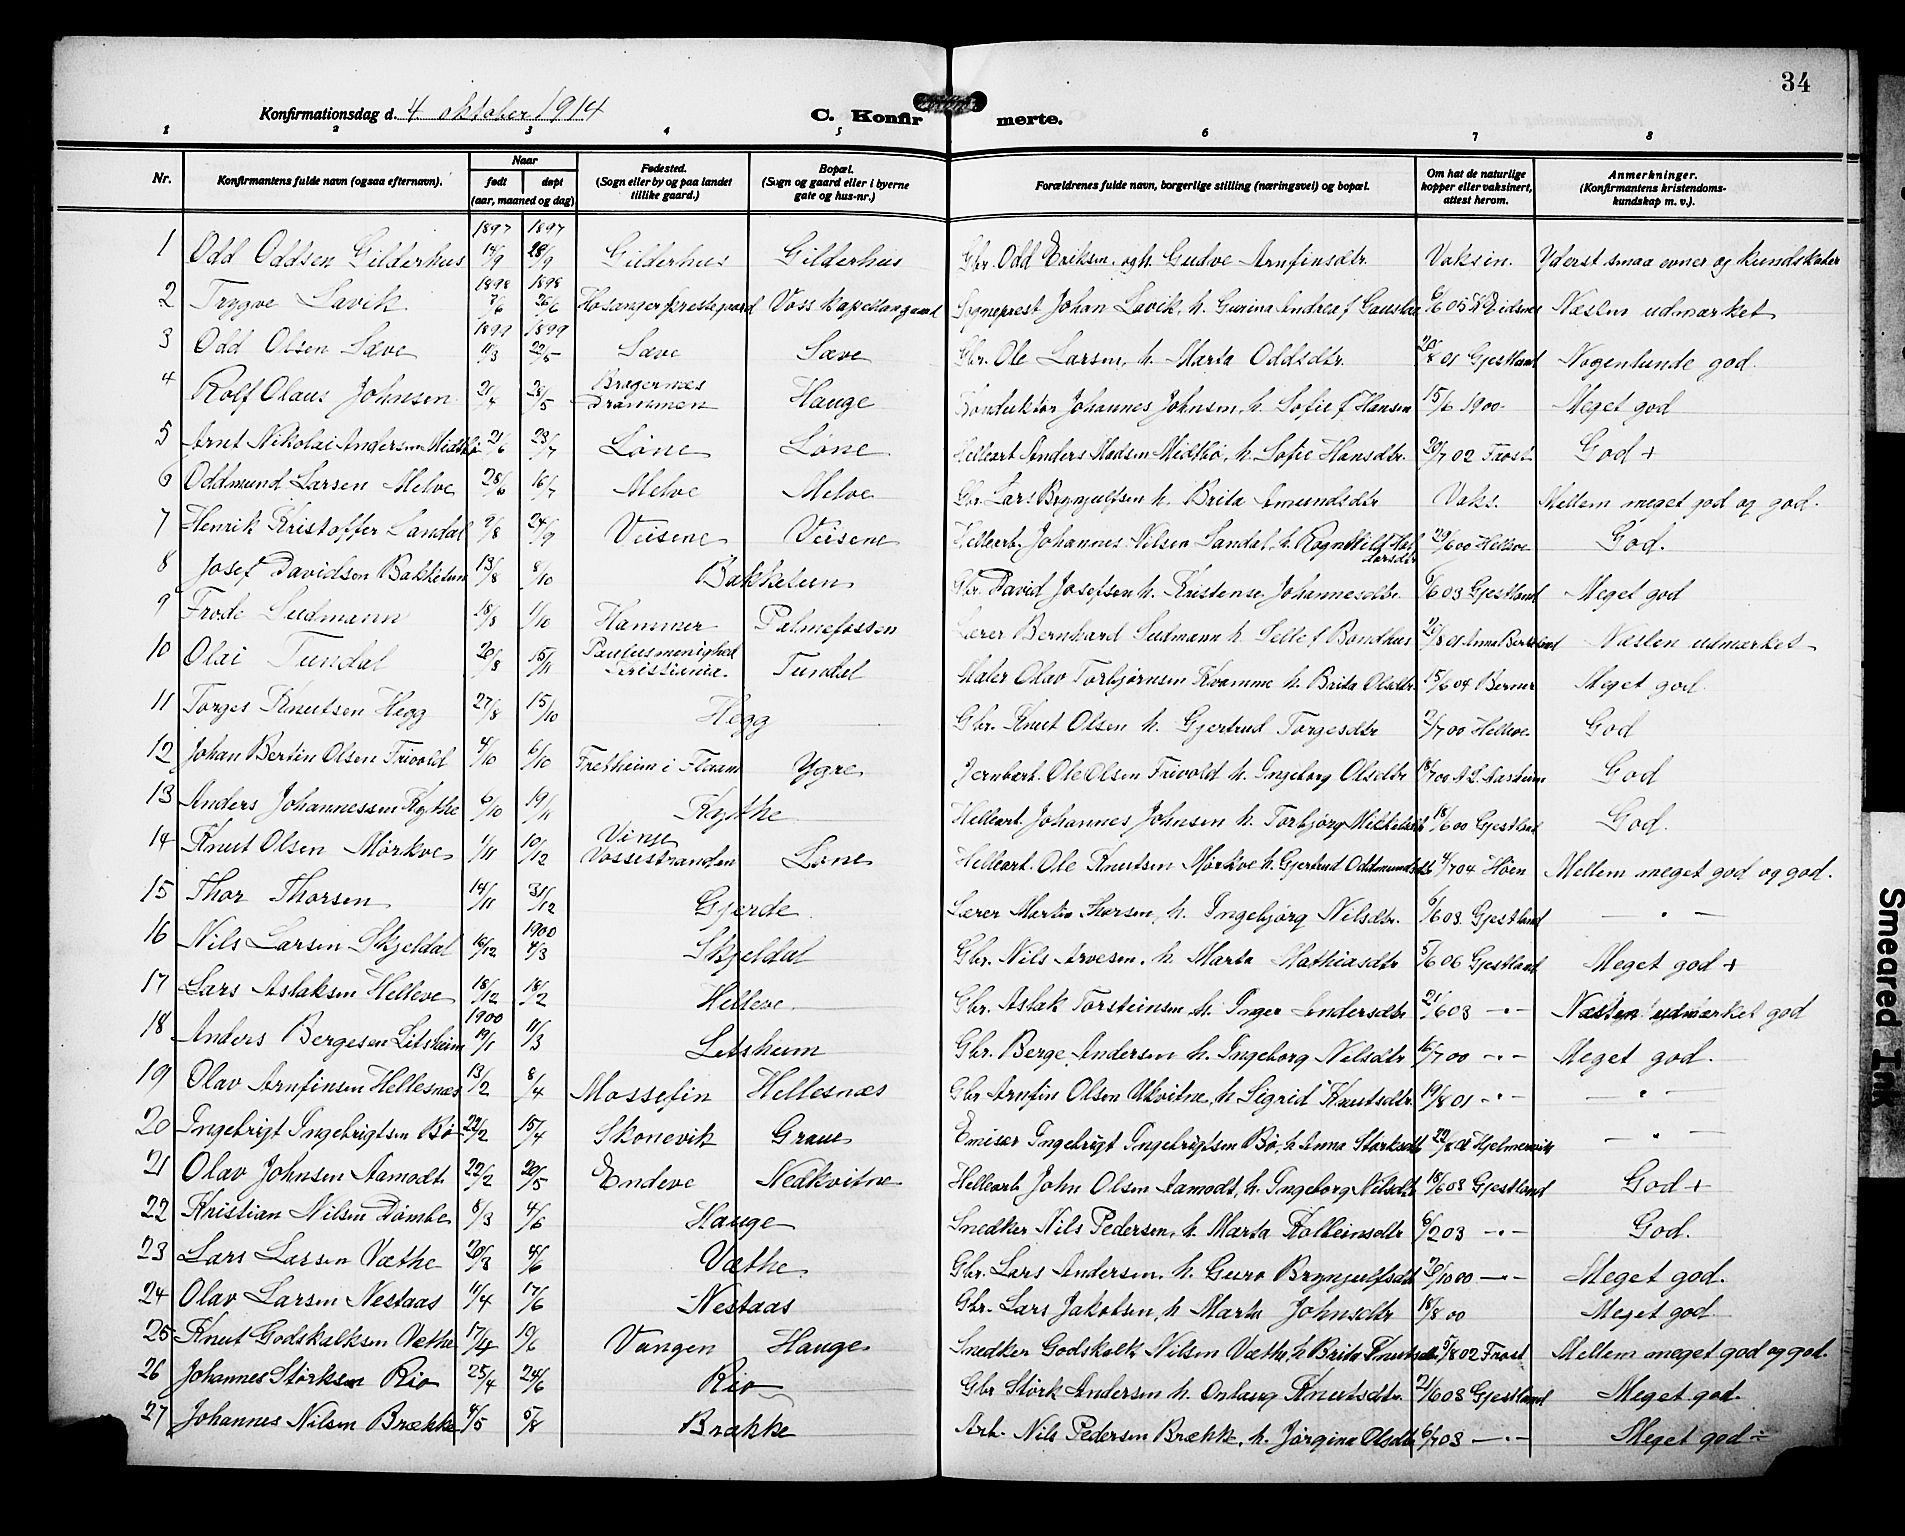 34
Konfirmationsdag d. 4 oktober 1914
C. Konfirmerte.
1 2 3 4 5 6 7 8
Nr. Konfirmantens fulde navn (ogsaa efternavn). Naar født døpt (aar, maaned og dag) Fødested. (Sogn eller by og paa landet tillike gaard.) Bopæl. (Sogn og gaard eller i byerne gate og hus-nr.) Forældrenes fulde navn, borgerlige stilling (næringsvei) og bopæl. Om hat de naturlige kopper eller vaksinert, attest herom. Anmerkninger. (Konfirmantens kristendoms-kundskap m. v.).
1897 1897
1 Odd Oddsen Gilderhus 14/9 28/9 Gilderhus Gilderhus Gbr. Odd Eriksen og h. Gudve Arnfinsdtr. Vaksin. Yderst smaa evner og kundskaber
1898 1898
2 Trygve Lavik 7/6 26/6 Hosanger prestegaard Voss kapellangaard Sogneprest Johan Lavik, h. Gurina Andrea f Gaustad Næsten udmærket
1899 1899
3 Odd Olsen Sæve 11/3 22/5 Sæve Sæve Gbr. Ole Larsen, h. Marta Oddsdtr. 20/8 01 Gjestland Nogenlunde god
4 Rolf Olaus Johnsen 2/4 28/5 Bragernæs Drammen Hauge Konduktør Johannes Johnsen, h. Sofie f Hansen 15/6 1900 Meget god
5 Arnt Nikolai Andersen Midtbø 21/6 23/7 Løne Løne Hellearb. Anders Madsen Midtbø, h. Sofie Hansdtr. 20/7 02 Frost God +
6 Oddmund Larsen Melve 28/6 16/7 Melve Melve Gbr. Lars Brynjulfsen h. Brita Amundsdtr Vaks. Mellem meget god og god.
7 Henrik Kristoffer Sandal 9/8 24/9 Veisene Veisene Hellearb. Johannes Nilsen Sandal, h. Ragnhild 29/6 00 Helleve God.
8 Josef Davidsen Bakketun 13/8 8/10 Bakketun Gbr. David Josefsen h. Kristense Johannesdtr. 6/6 03 Gjestland Meget god
9 Frode Sudmann 18/8 1/10 Hammer Palmefossen Lærer Bernhard Sudmann h. f Bondhus Næsten udmærket
10 Olai Tundal 20/8 15/11 Paulusmenighed Kristiania. Tundal Maler Olav Torbjørnsen Kvamme h. Brita Olsdtr. 15/6 04 Berner Meget god
11 Torges Knutsen Hegg 27/8 15/10 Hegg Gbr. Knut Olsen h. Gjertrud Torgesdtr 2/7 00 Helleve God
12 Johan Bertin Olsen Trivold 4/10 6/10 Fretheim i Flaam Ygre Jernbarb. Ole Olsen Trivold h. Ingeborg Olsdtr God
13 Anders Johannessen Kythe 6/10 19/11 Kythe Hellearb. Johannes Johnsen h. Torbjørg Mikkelsdtr 18/6 00 Gjestland God.
14 Knut Olsen Mørkve 1/11 10/12 Vinje Vossestranden Løne Hellearb. Ole Knutsen Mørkve h. Gjertrud Oddmundsdtr 4/7 04 Høen Mellem meget god og god.
15 Thor Thorsen 14/11 31/12 Gjerde Lærer Martin Thorsen, h. Ingebjørg Nilsdtr. 6/6 03 Gjestland — " —
1900
16 Nils Larsen Skjeldal 16/12 4/3 Skjeldal Gbr. Nils Arvesen. h. Marta Mathiasdtr 5/6 06 Gjestland Meget god +
17 Lars Aslaksen Helleve 18/12 18/2 Helleve Gbr. Aslak Torsteinsen h. Inger Andersdtr 21/6 03 — " — Næsten udmærket god
1900
18 Anders Bergesen Litsheim 19/1 11/3 Litsheim Gbr. Berge Andersen h. Ingeborg Nilsdtr 16/7 00 — " — Meget god.
19 Olav Arnfinsen Hellesnæs 13/2 8/4 Mossefin Hellesnæs Gbr Arnfin Olsen Ukvitne, h. Sigrid Knutsdtr. 19/8 01 — " — — " —
20 Ingebrigt Ingebrigtsen Bø 22/2 15/4 Skonevik Graue Emisær Ingebrigt Ingebrigtsen Bø, h. Anna Størksdtr — " —
21 Olav Johnsen Aamodt 22/2 20/5 Endeve Nedkvitne Hellearb John Olsen Aamodt, h. Ingeborg Nilsdtr 18/6 03 Gjestland God +
22 Kristian Nilsen Dømbe 8/3 4/6 Hauge Snedker Nils Pedersen, h. Marta Kolbeinsdtr 6/2 03 — " — God.
23 Lars Larsen Væthe 20/3 4/6 Væthe Gbr. Lars Andersen. h. Guro Brynjulfsdtr 26/10 00 — " — Meget god.
24 Olav Larsen Nestaas 11/4 17/6 Nestaas Gbr. Lars Jakobsen, h Marta Johnsdtr 18/8 00 Meget god
25 Knut Godskalksen Væthe 17/4 19/6 Vangen Hauge Snedker Godskalk Nilsen Væthe, h Brita Knutsdtr 5/8 02 Frost Mellem meget god og god.
26 Johannes Størksen Rio 25/4 24/6 Rio Gbr Størk Andersen h. Onlaug Knutsdtr. 21/6 03 Gjestland Meget god.
27 Johannes Nilsen Brække 4/5 5/8 Brække Arb. Nils Pedersen Brække, h. Jørgina Olsdtr 6/7 03 — " — Meget god ÷
Smeared Ink